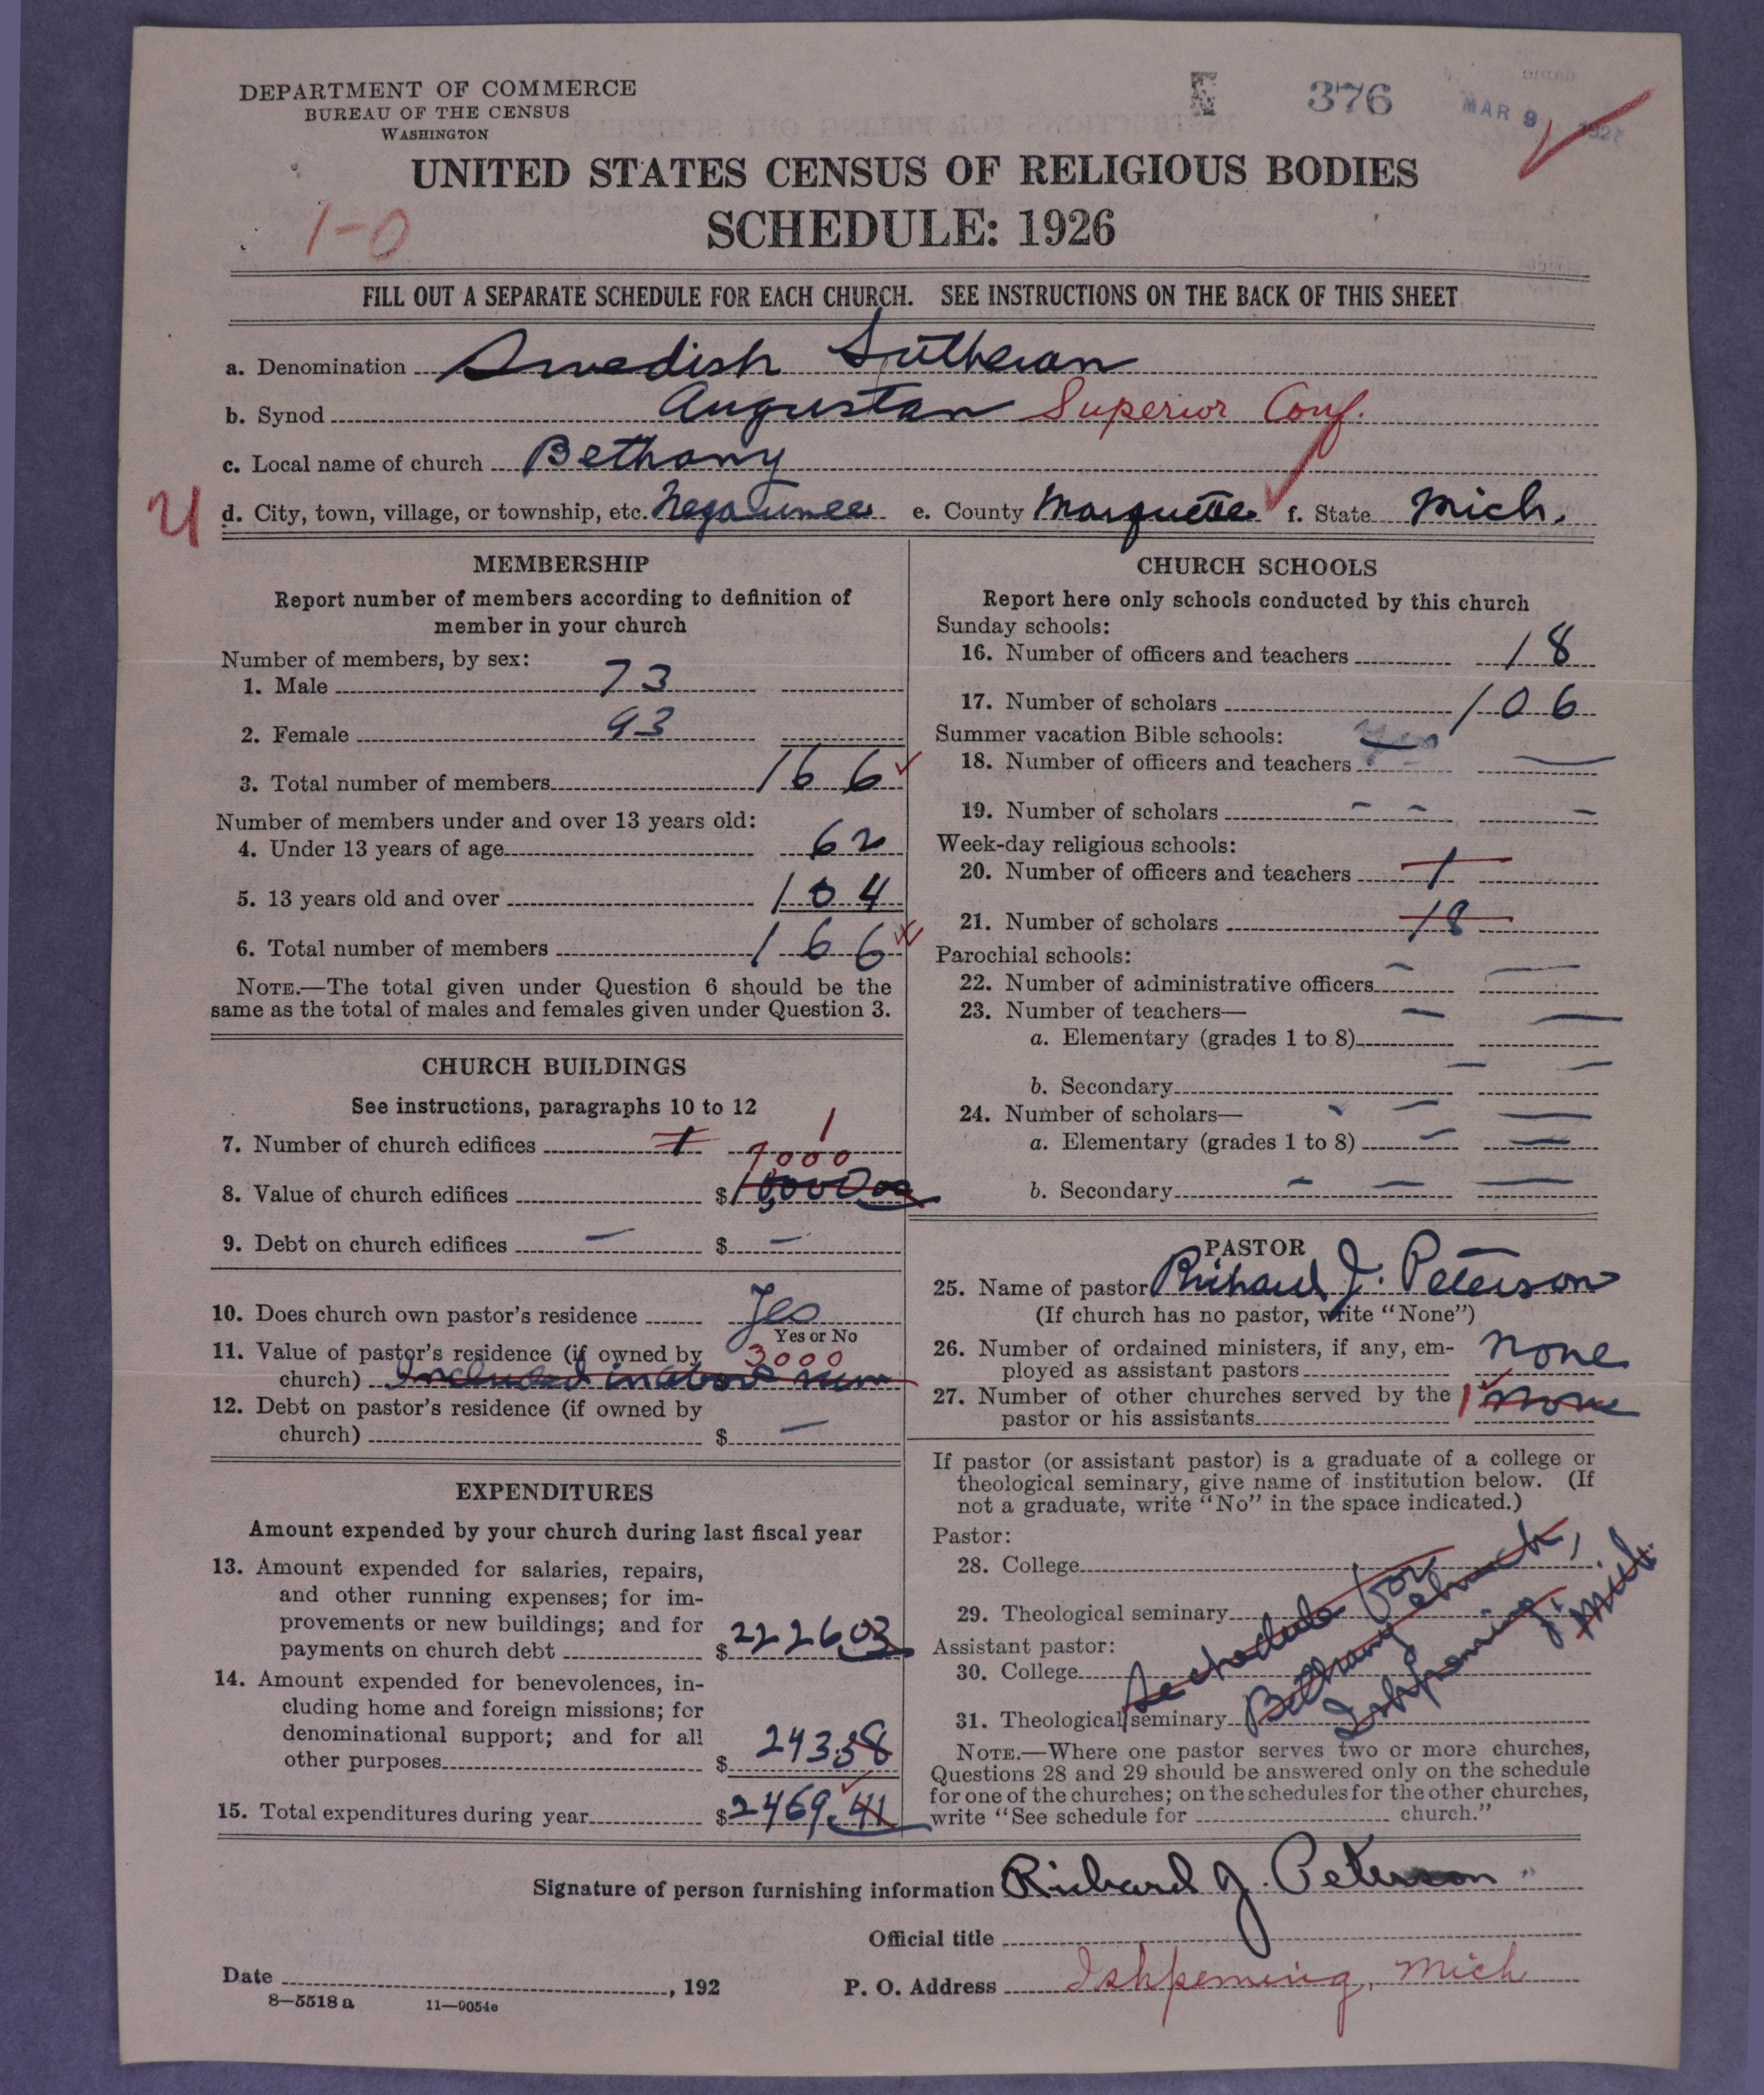 DEPARTMENT OF COMMERCE
BUREAU OF THE CENSUS
WASHINGTON
376
MAR 9 192
UNITED STATES CENSUS OF RELIGIOUS BODIES
1-0
SCHEDULE: 1926
FILL OUT A SEPARATE SCHEDULE FOR EACH CHURCH. SEE INSTRUCTIONS ON THE BACK OF THIS SHEET
a. Denomination Swedish Lutheran
b. Synod Augustan Superior Conf.
c. Local name of church Bethany
d. City, town, village, or township, etc. Negaunee e. County Marquette f. State Mich.
MEMBERSHIP
Report number of members according to definition of
member in your church
Number of members, by sex:
1. Male 73
2. Female 93
3. Total number of members 166
Number of members under and over 13 years old:
4. Under 13 years of age 62
5. 13 years old and over 104
6. Total number of members 166
NOTE.—The total given under Question 6 should be the
same as the total of males and females given under Question 3.
CHURCH BUILDINGS
See instructions, paragraphs 10 to 12
7. Number of church edifices 1 1
7000
8. Value of church edifices $10,000.00
9. Debt on church edifices — $ —
10. Does church own pastor's residence Yes
Yes or No
11. Value of pastor's residence (if owned by 3000
church) Included in above sum
12. Debt on pastor's residence (if owned by
church) $ —
EXPENDITURES
Amount expended by your church during last fiscal year
13. Amount expended for salaries, repairs,
and other running expenses; for im-
provements or new buildings; and for
payments on church debt $2226.03
14. Amount expended for benevolences, in-
cluding home and foreign missions; for
denominational support; and for all
other purposes $243.38
15. Total expenditures during year $2469.41
CHURCH SCHOOLS
Report here only schools conducted by this church
Sunday schools:
16. Number of officers and teachers 18
17. Number of scholars 106
Summer vacation Bible schools:
18. Number of officers and teachers —
19. Number of scholars - - -
Week-day religious schools:
20. Number of officers and teachers 1
21. Number of scholars 18
Parochial schools:
22. Number of administrative officers — —
23. Number of teachers—
a. Elementary (grades 1 to 8) — —
b. Secondary — —
24. Number of scholars—
a. Elementary (grades 1 to 8) — —
b. Secondary - — —
PASTOR
25. Name of pastor Richard J. Peterson
(If church has no pastor, write "None")
26. Number of ordained ministers, if any, em-
ployed as assistant pastors none
27. Number of other churches served by the
pastor or his assistants 1 none
If pastor (or assistant pastor) is a graduate of a college or
theological seminary, give name of institution below. (If
not a graduate, write "No" in the space indicated.)
Pastor:
28. College
29. Theological seminary
Assistant pastor:
30. College
31. Theological seminary
Schedule for
Bethany church,
Ishpeming, Mich.
NOTE.—Where one pastor serves two or more churches,
Questions 28 and 29 should be answered only on the schedule
for one of the churches; on the schedules for the other churches,
write "See schedule for church."
Signature of person furnishing information Richard J. Peterson
Official title
Date , 192
P. O. Address Ishpeming, Mich
8—5518 a 11—9054e